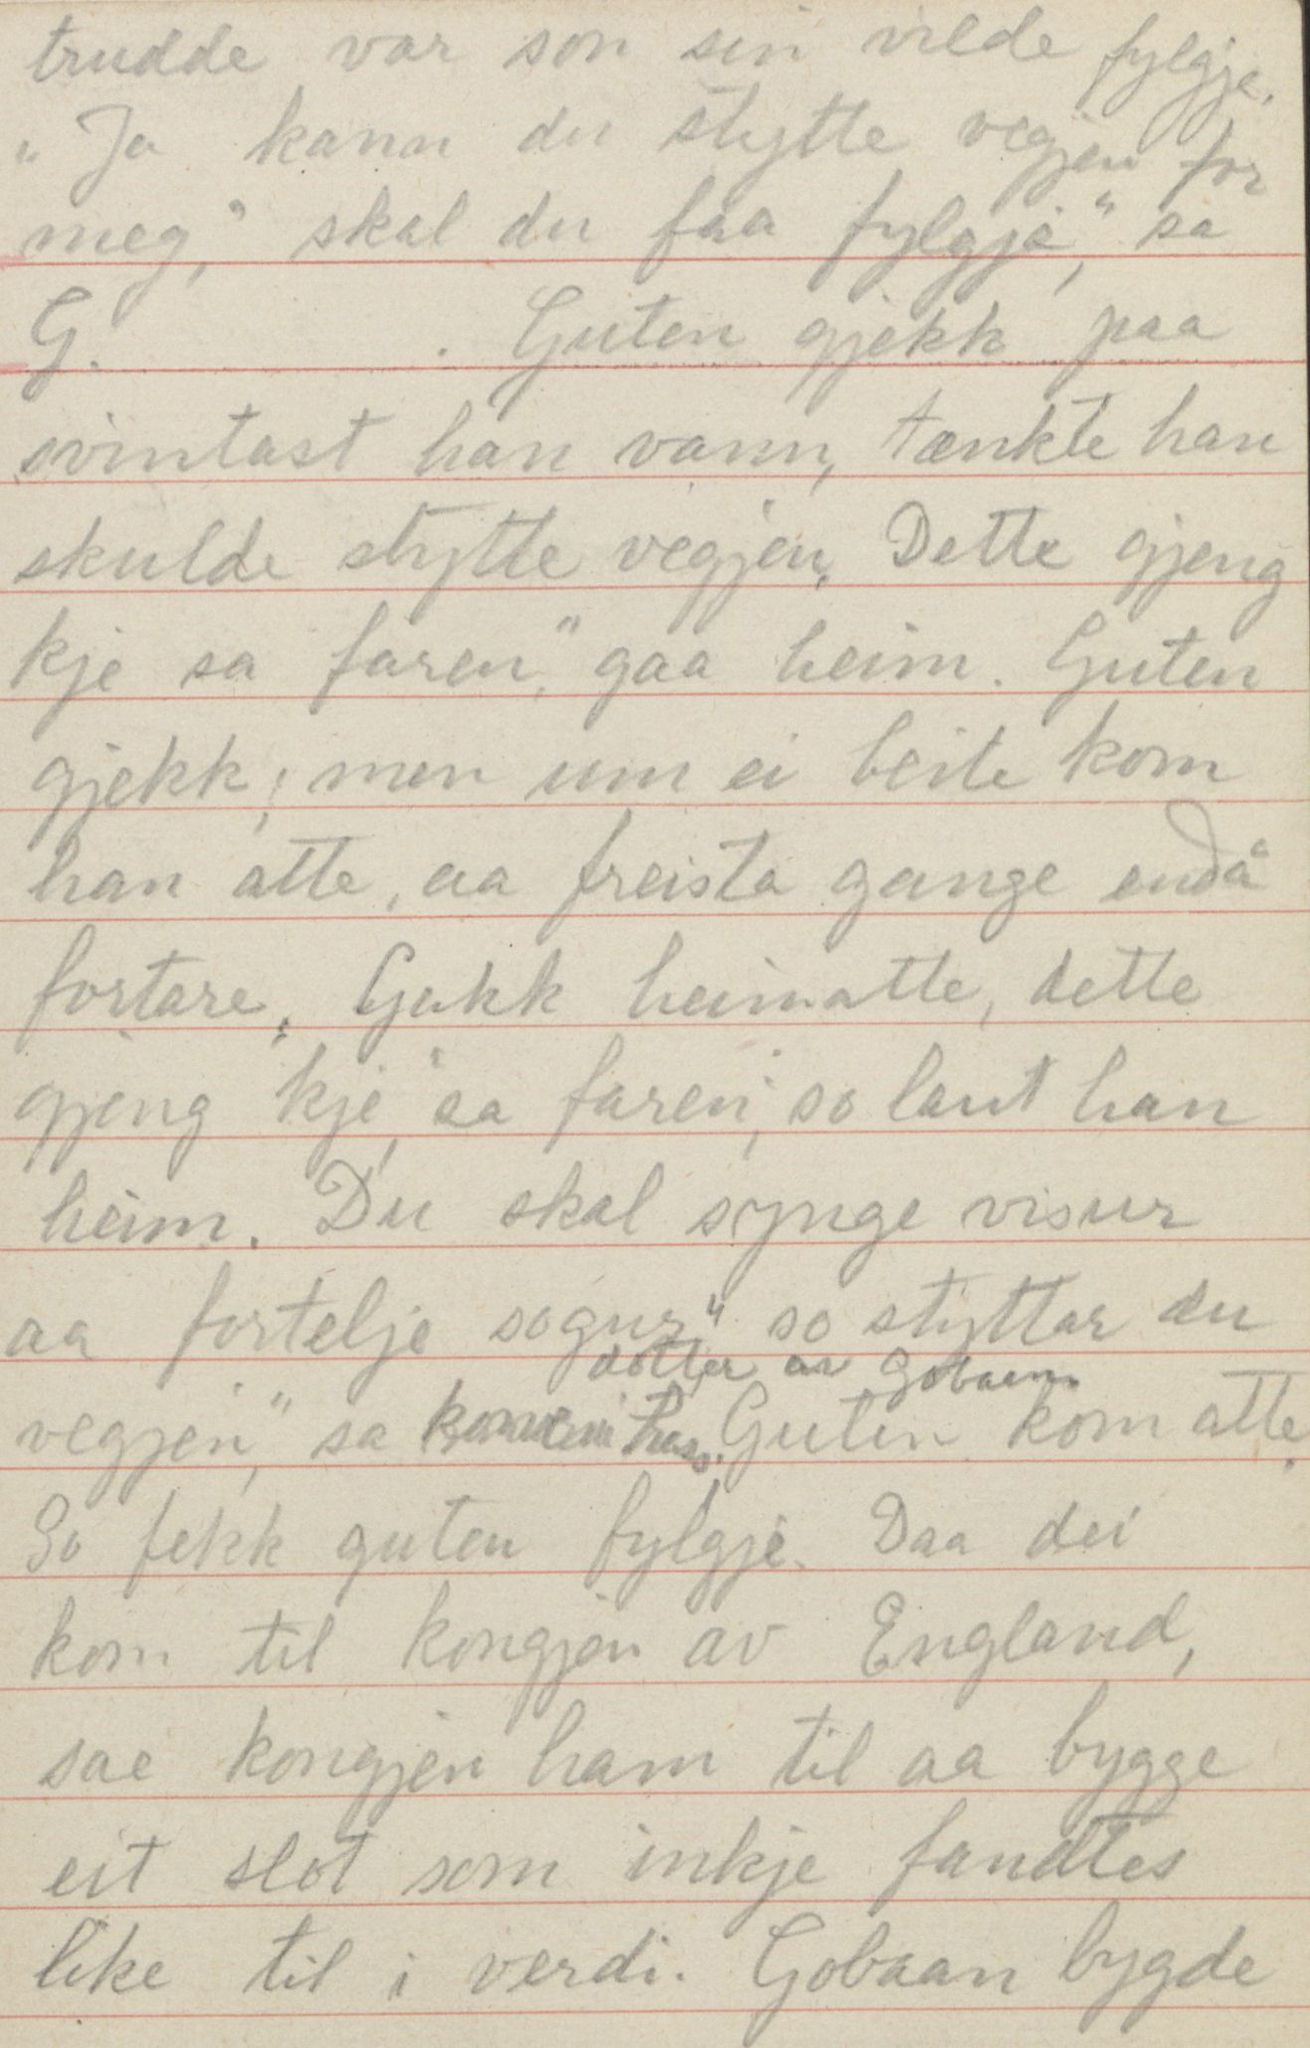 trudde var son sin vilde fylgje.
"Ja kann du stytte vegjen for
meg," skal du faa fylgje," sa
G. . Guten gjekk paa
svintast han vann, tænkte han
skulde stytte vegjen. Dette gjeng
kje sa faren," gaa heim. Guten
gjekk; men um ei beite kom
han atte, aa freista gange endå
fortare. Gakk heimatte, dette
gjeng kje," sa faren, so laut han
heim. Du skal synge visur
aa fortelje sogur" so styttar du
dotter av Gobaan.
vegjen," sa konæ hass. Guten kom atte.
So fekk guten fylgje. Daa dei
kom til kongjen av England,
sae kongjen ham til aa bygge
eit slot som inkje fandtes
like til i verdi. Gobaan bygde